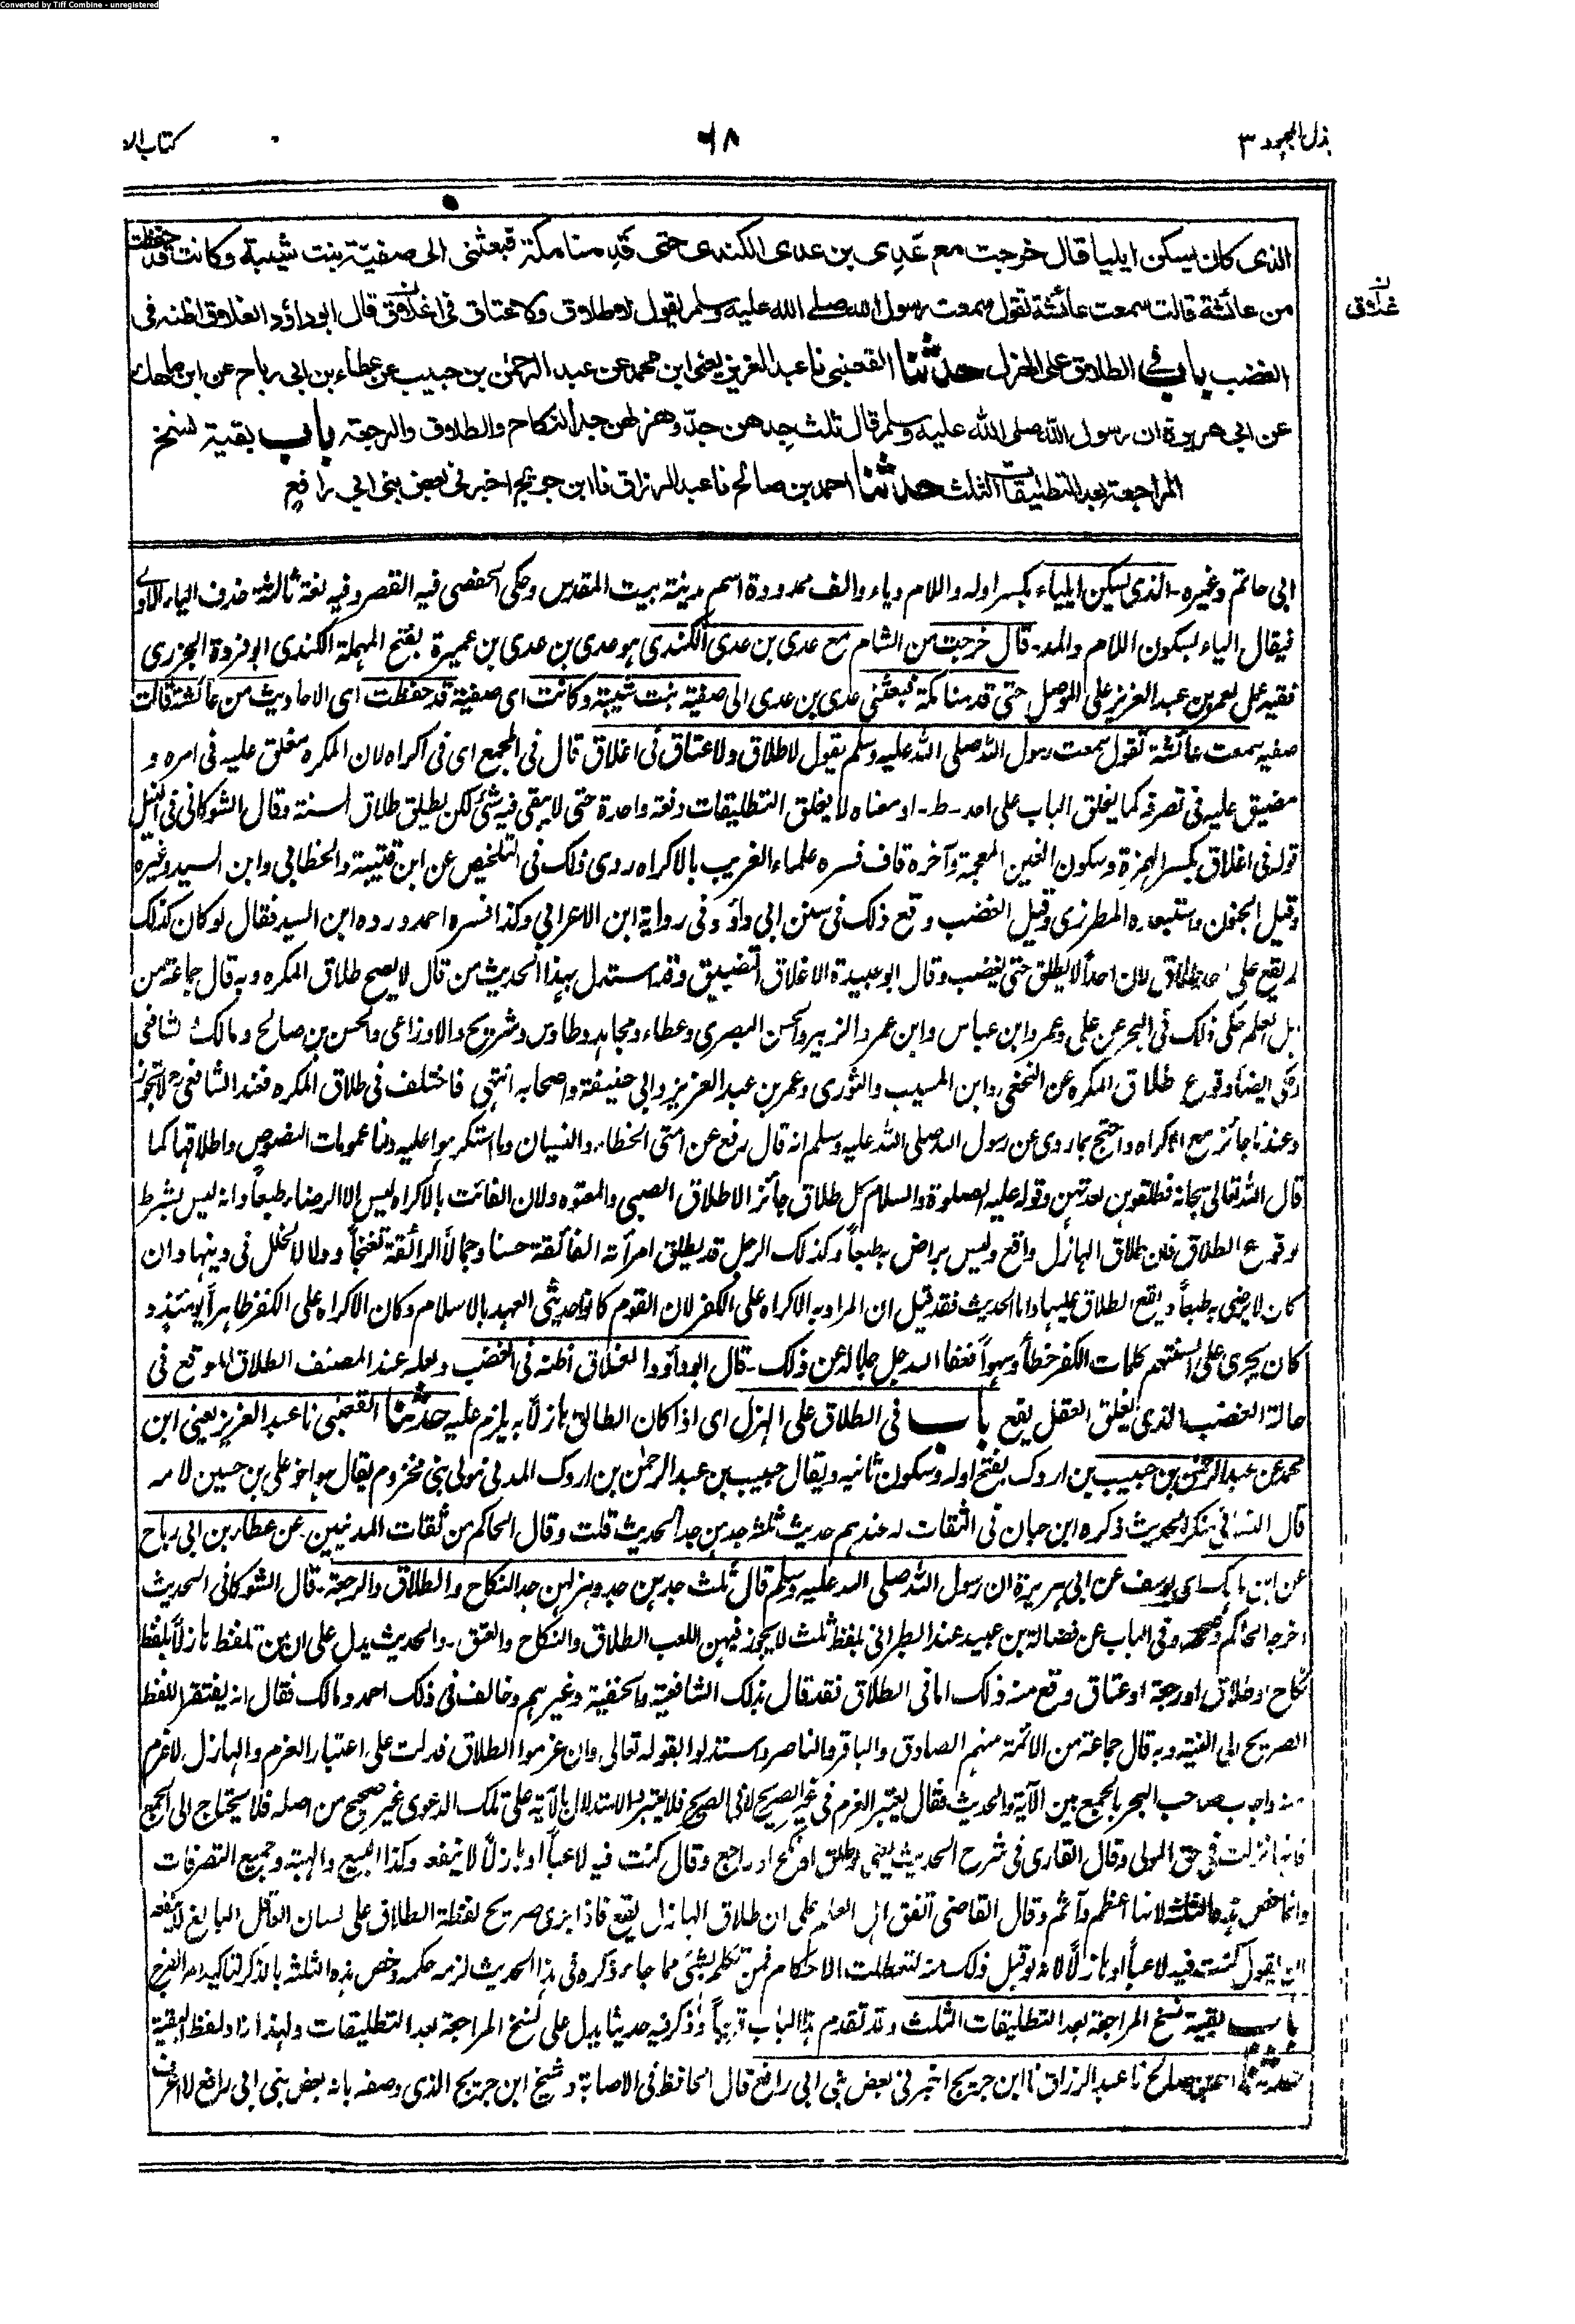 Converted by Tiff Combine - unregistered
بذل المجهود ٣
٦٨
كتاب الط
الذى كان يسكن ايليا قال خرجت مع عَدِى بن عدى الكندى حتى قدِمنا مكة فبعثنى الى صفيّة بنت شيبة وكانت قد حفظت
من عائشة قالت سمعت عائشة تقول سمعت رسول الله صلى الله عليه وسلم يقول لا طلاق ولا عتاق فى اغلاق قال ابو داؤد الغلاق اظنه فى
غلاق
الغضب باب فى الطلاق على الهزل حدثنا القعنبى نا عبد العزيز يعنى ابن محمد عن عبد الرحمٰن بن حبيب عن عطاء بن ابى رباح عن ابن ماهك
عن ابى هريرة ان رسول الله صلى الله عليه وسلم قال ثلث جدهن جدّ وهزلهن جد النكاح والطلاق والرجعة باب بقية نسخ
المراجعة بعد التطليقات الثلث حدثنا احمد بن صالح نا عبد الرزاق نا ابن جريج اخبرنى بعض بنى ابى رافع
ابى حاتم وغيره ـ الذى يسكن ايلياء بكسر اوله واللام وياء والف ممدودة اسم مدينة بيت المقدس وحكى الحفصى فيه القصر وفيه لغة ثالثة حذف الياء الاولى
فيقال الياء بسكون اللام والمد ـ قال خرجت من الشام مع عدى بن عدى الكندى هو عدى بن عدى بن عميرة بفتح المهملة الكندى ابو فروة الجزرى
فقيه عمل لعمر بن عبد العزيز على الموصل حتى قدمنا مكة فبعثنى عدى بن عدى الى صفية بنت شيبة وكانت اى صفية قد حفظت اى الاحاديث من عائشة قالت
صفية سمعت عائشة تقول سمعت رسول الله صلى الله عليه وسلم يقول لا طلاق ولا عتاق فى اغلاق قال فى المجمع اى فى اكراه لان المكره مغلق عليه فى امره و
مضيق عليه فى تصرفه كما يغلق الباب على احد ـ ط ـ او معناه لا يغلق التطليقات دفعة واحدة حتى لا يبقى فيه شئ لكن يطلق طلاق السنة وقال الشوكانى فى النيل
قوله فى اغلاق بكسر الهمزة وسكون الغين المعجمة وآخره قاف فسره علماء الغريب بالاكراه روى ذلك فى التلخيص عن ابن قتيبة والخطابى وابن السيد وغيره
وقيل الجنون واستبعده المطرزى وقيل الغضب وقع ذلك فى سنن ابى داؤد وفى رواية ابن الاعرابى وكذا فسره احمد ورده ابن السيد فقال لو كان كذلك
لم يقع على طلاق لان احدا لا يطلق حتى يغضب وقال ابو عبيدة الاغلاق التضييق وقد استدل بهذا الحديث من قال لا يصح طلاق المكره وبه قال جماعة من
اهل العلم حكى ذلك فى البحر عن على وعمر وابن عباس وابن عمر والزبير والحسن البصرى وعطاء ومجاهد وطاوس وشريح والاوزاعى والحسن بن صالح ومالك والشافعى
وحكى ايضا وقوع طلاق المكره عن النخعى وابن المسيب والثورى وعمر بن عبد العزيز وابى حنيفة واصحابه انتهى فاختلف فى طلاق المكره فعند الشافعى لا يجوز
وعندنا جائز مع الاكراه واحتج بما روى عن رسول الله صلى الله عليه وسلم انه قال رفع عن امتى الخطاء والنسيان وما استكرهوا عليه ولنا عمومات النصوص واطلاقها كما
قال الله تعالى سبحانه فطلقوهن لعدتهن وقوله عليه الصلوة والسلام كل طلاق جائز الا طلاق الصبى والمعتوه ولان الفائت بالاكراه ليس الا الرضاء طبعا وانه ليس بشرط
لوقوع الطلاق فان طلاق الهازل واقع وليس براض به طبعاً وكذلك الرجل قد يطلق امرأته الفائقة حسنا وجمالا الرائقة تغنجاً ودلالا لخلل فى دينها وان
كان لا يرضى به طبعاً ويقع الطلاق عليها واما الحديث فقد قيل ان المراد به الاكراه على الكفر لان القوم كانوا حديثى العهد بالاسلام وكان الاكراه على الكفر ظاهراً يومئذ و
كان يجرى على السنتهم كلمات الكفر خطأ وسهواً فعفا الله جل جلاله عن ذلك ـ قال ابو داؤد الغلاق اظنه فى الغضب ولعله عند المصنف الطلاق الموقع فى
حالة الغضب الذى يغلق العقل يقع باب فى الطلاق على الهزل اى اذا كان الطالق هازلا به يلزم عليه حدثنا القعنبى نا عبد العزيز يعنى ابن
محمد عن عبد الرحمن بن حبيب بن اردك بفتح اوله وسكون ثانيه ويقال حبيب بن عبد الرحمٰن بن اردك المدنى مولى بنى مخزوم يقال هو اخو على بن حسين لامه
قال النسائى منكر الحديث ذكره ابن حبان فى الثقات له عندهم حديث ثلثة جدهن جد الحديث قلت وقال الحاكم من ثقات المدنيين عن عطاء بن ابى رباح
عن ابن ماهك اى يوسف عن ابى هريرة ان رسول الله صلى الله عليه وسلم قال ثلث جدهن جد وهزلهن جد النكاح والطلاق والرجعة ـ قال الشوكانى الحديث
اخرجه الحاكم وصححه وفى الباب عن فضالة بن عبيد عند الطبرانى بلفظ ثلث لا يجوز فيهن اللعب الطلاق والنكاح والعتق ـ والحديث يدل على ان من تلفظ هازلاً بلفظ
نكاح او طلاق او رجعة او عتاق وقع منه ذلك اما فى الطلاق فقد قال بذلك الشافعية والحنفية وغيرهم وخالف فى ذلك احمد ومالك فقال انه يفتقر اللفظ
الصريح الى النية وبه قال جماعة من الائمة منهم الصادق والباقر والناصر واستدلوا بقوله تعالى وان عزموا الطلاق فدلت على اعتبار العزم والهازل لا عزم
منه واجاب صاحب البحر بالجمع بين الآية والحديث فقال يعتبر العزم فى غير الصريح لا فى الصريح فلا يعتبر والاستدلال بالآية على تلك الدعوى غير صحيح من اصله فلا يحتاج الى الجمع
فانها نزلت فى حق المولى وقال القارى فى شرح الحديث يعنى لو طلق او نكح او راجع وقال كنت فيه لاعباً او هازلاً لا ينفعه وكذا البيع والهبة وجميع التصرفات
وانما خص هذه الثلثة لانها اعظم وآثم وقال القاضى اتفق اهل العلم على ان طلاق الهازل يقع فاذا جرى صريح لفظة الطلاق على لسان العاقل البالغ لا ينفعه
ان يقول كنت فيه لاعباً او هازلاً لانه لو قبل ذلك منه لتعطلت الاحكام فمن تكلم بشئ مما جاء ذكره فى هذا الحديث لزمه حكمه وخص هذه الثلثة بالذكر لتاكيد امر الفرج
باب بقية نسخ المراجعة بعد التطليقات الثلث وقد تقدم هذا الباب قريباً وذكر فيه حديثا يدل على نسخ المراجعة بعد التطليقات ولهذا زاد لفظ البقية
حدثنا احمد بن صالح نا عبد الرزاق نا ابن جريج اخبرنى بعض بنى ابى رافع قال الحافظ فى الاصابة وشيخ ابن جريج الذى وصفه بانه بعض بنى ابى رافع لا اعرف